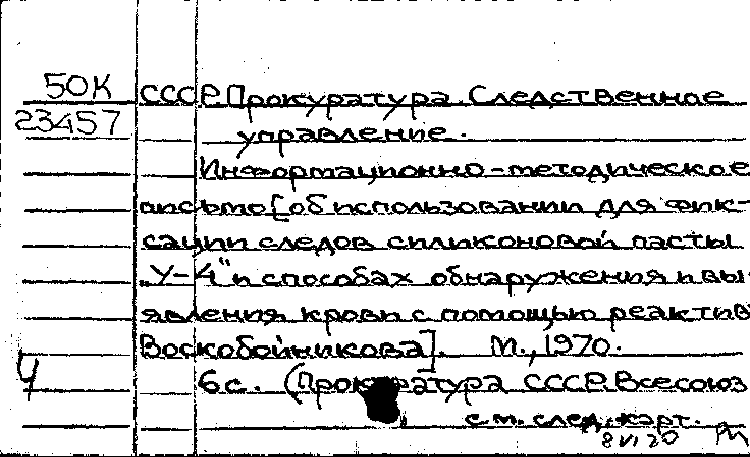 50К
СССР. Прокуратура. Следственное
23457
управление.
Информационно-методическое
письмо [об использовании для фик-
сации следов силиконовой пасты
„У-4" и способах обнаружения и вы-
явления крови с помощью реактив
Воскобойникова]. М., 1970.
Ч
6с. (Прокуратура СССР. Всесоюз
с.м. след. карт.